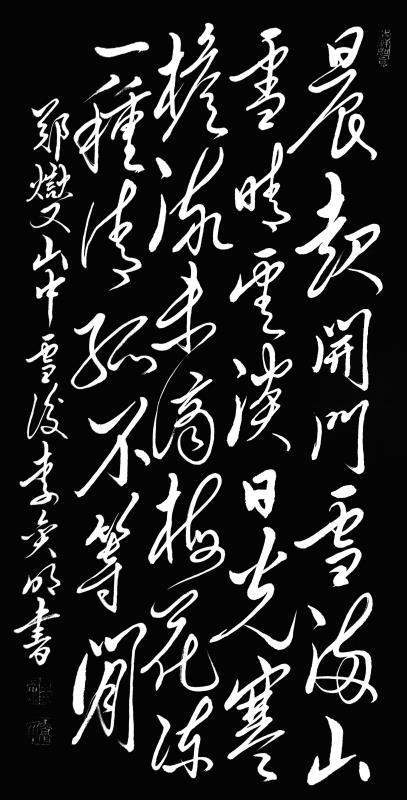 晨起開門雪滿山
雪晴雲淡日光寒
檐流未滴梅花凍
一種清孤不等閒
鄭燮山中雪後李明書